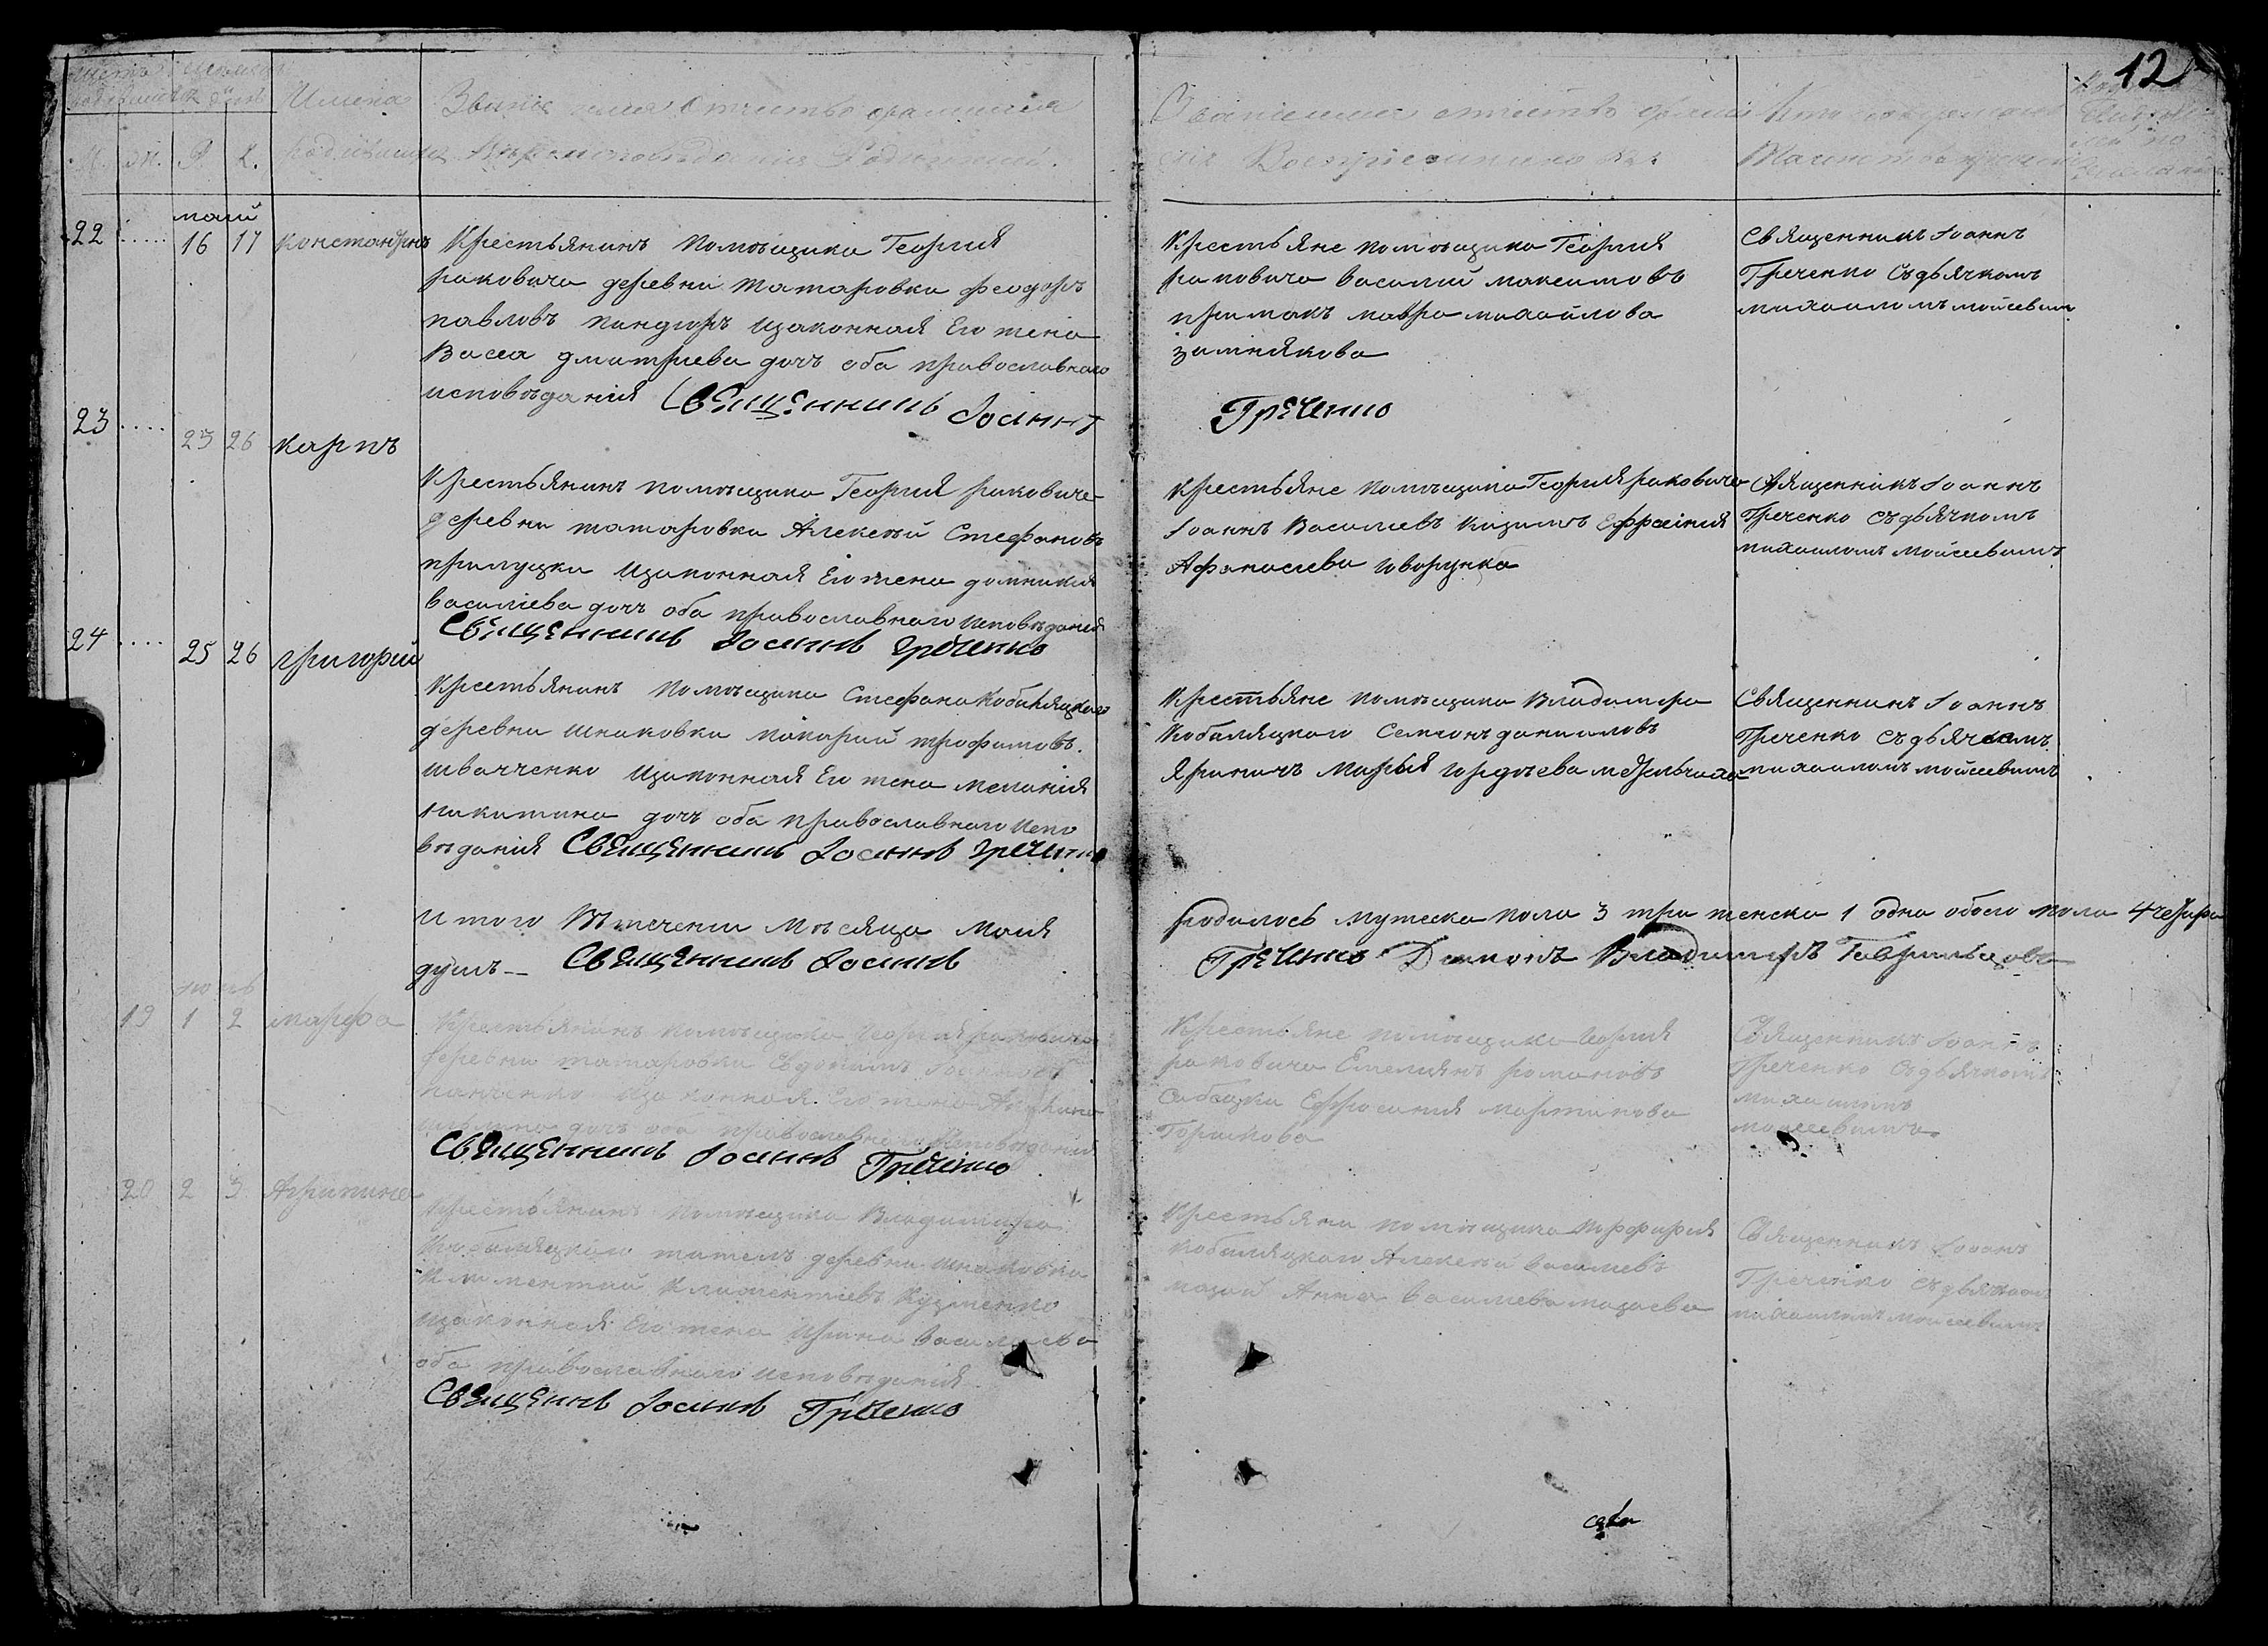 12
Имена
Званіе имя Отчество фамилия
родившихъ
Кто совершалъ
Таинство крещенія
М. Ж. Р. К.
май
22 16 17 Константинъ
Крестьянинъ помѣщика Георгия
раковича деревни татаровки феодоръ
павловъ изаконная Его жена
Васса дмитриева дочь оба православнаго
исповѣданія Священникъ Іоаннъ
Крестьяне помѣщика Георгия
раковича василий максимовъ
примакъ мавра михайлова
зимнякова
Греченко
Священникъ Іоаннъ
Греченко съдьячкомъ
михаиломъ мойсевимъ
23 25 26 карпъ
Крестьянинъ помѣщика Георгия раковича
деревни татаровки Алексѣй Стефановъ
прилуцки изаконная Его жена домникия
василиева дочь оба православнаго исповѣданія
Священникъ Іоаннъ Греченко
Крестьяне помѣщика Георгия раковича
Іоаннъ Василиевъ Ефросиния
Афанасиева
Священникъ Іоаннъ
Греченко съдьячкомъ
михаиломъ мойсевимъ
24 25 26 григорий
Крестьянинъ помѣщика Стефана Кобиляцкаго
деревни шнаковки макарий трофимовъ
швачченко изаконная Его жена мелания
никитина дочь оба православнаго испо
вѣданія Священникъ Іоаннъ Греченко
Крестьяне помѣщика Владимира
Кобиляцкаго Семионъ данииловъ
Яриничъ Марья гордѣева
Священникъ Іоаннъ
Греченко съдьячкомъ
михаиломъ мойсевимъ
Итого Втечении Мѣсяца Маія
родилось мужеска пола 3 три женска 1 одна обоего пола 4 четири
душъ – Священникъ Іоаннъ
Греченко Диаконъ Владимиръ
июнь
19 1 2 марфа
Крестьянинъ помѣщика Георгия раковича
деревни татаровки Евдокимъ
панченко изаконная Его жена
дочь оба православнаго исповѣданія
Священникъ Іоаннъ Греченко
Крестьяне помѣщика Георгия
раковича Емелиянъ романовъ
Сабацки Ефросиния мартинова
Горшкова
Священникъ Іоаннъ
Греченко съдьячкомъ
михаиломъ
мойсевимъ
20 2 3 Агрипина
Крестьянинъ помѣщика Владимира
Кобиляцкаго жителъ деревни шнаковки
Климентий Климентиевъ Кузменко
изаконная Его жена Ирина василиева
оба православнаго исповѣданія
Священникъ Іоаннъ Греченко
Крестьяни помѣщика Порфирия
кобиляцкаго Алексѣй василиевъ
мазий Анна василиева мазаева
Священникъ Іоаннъ
Греченко съдьячкомъ
михаиломъ мойсевимъ